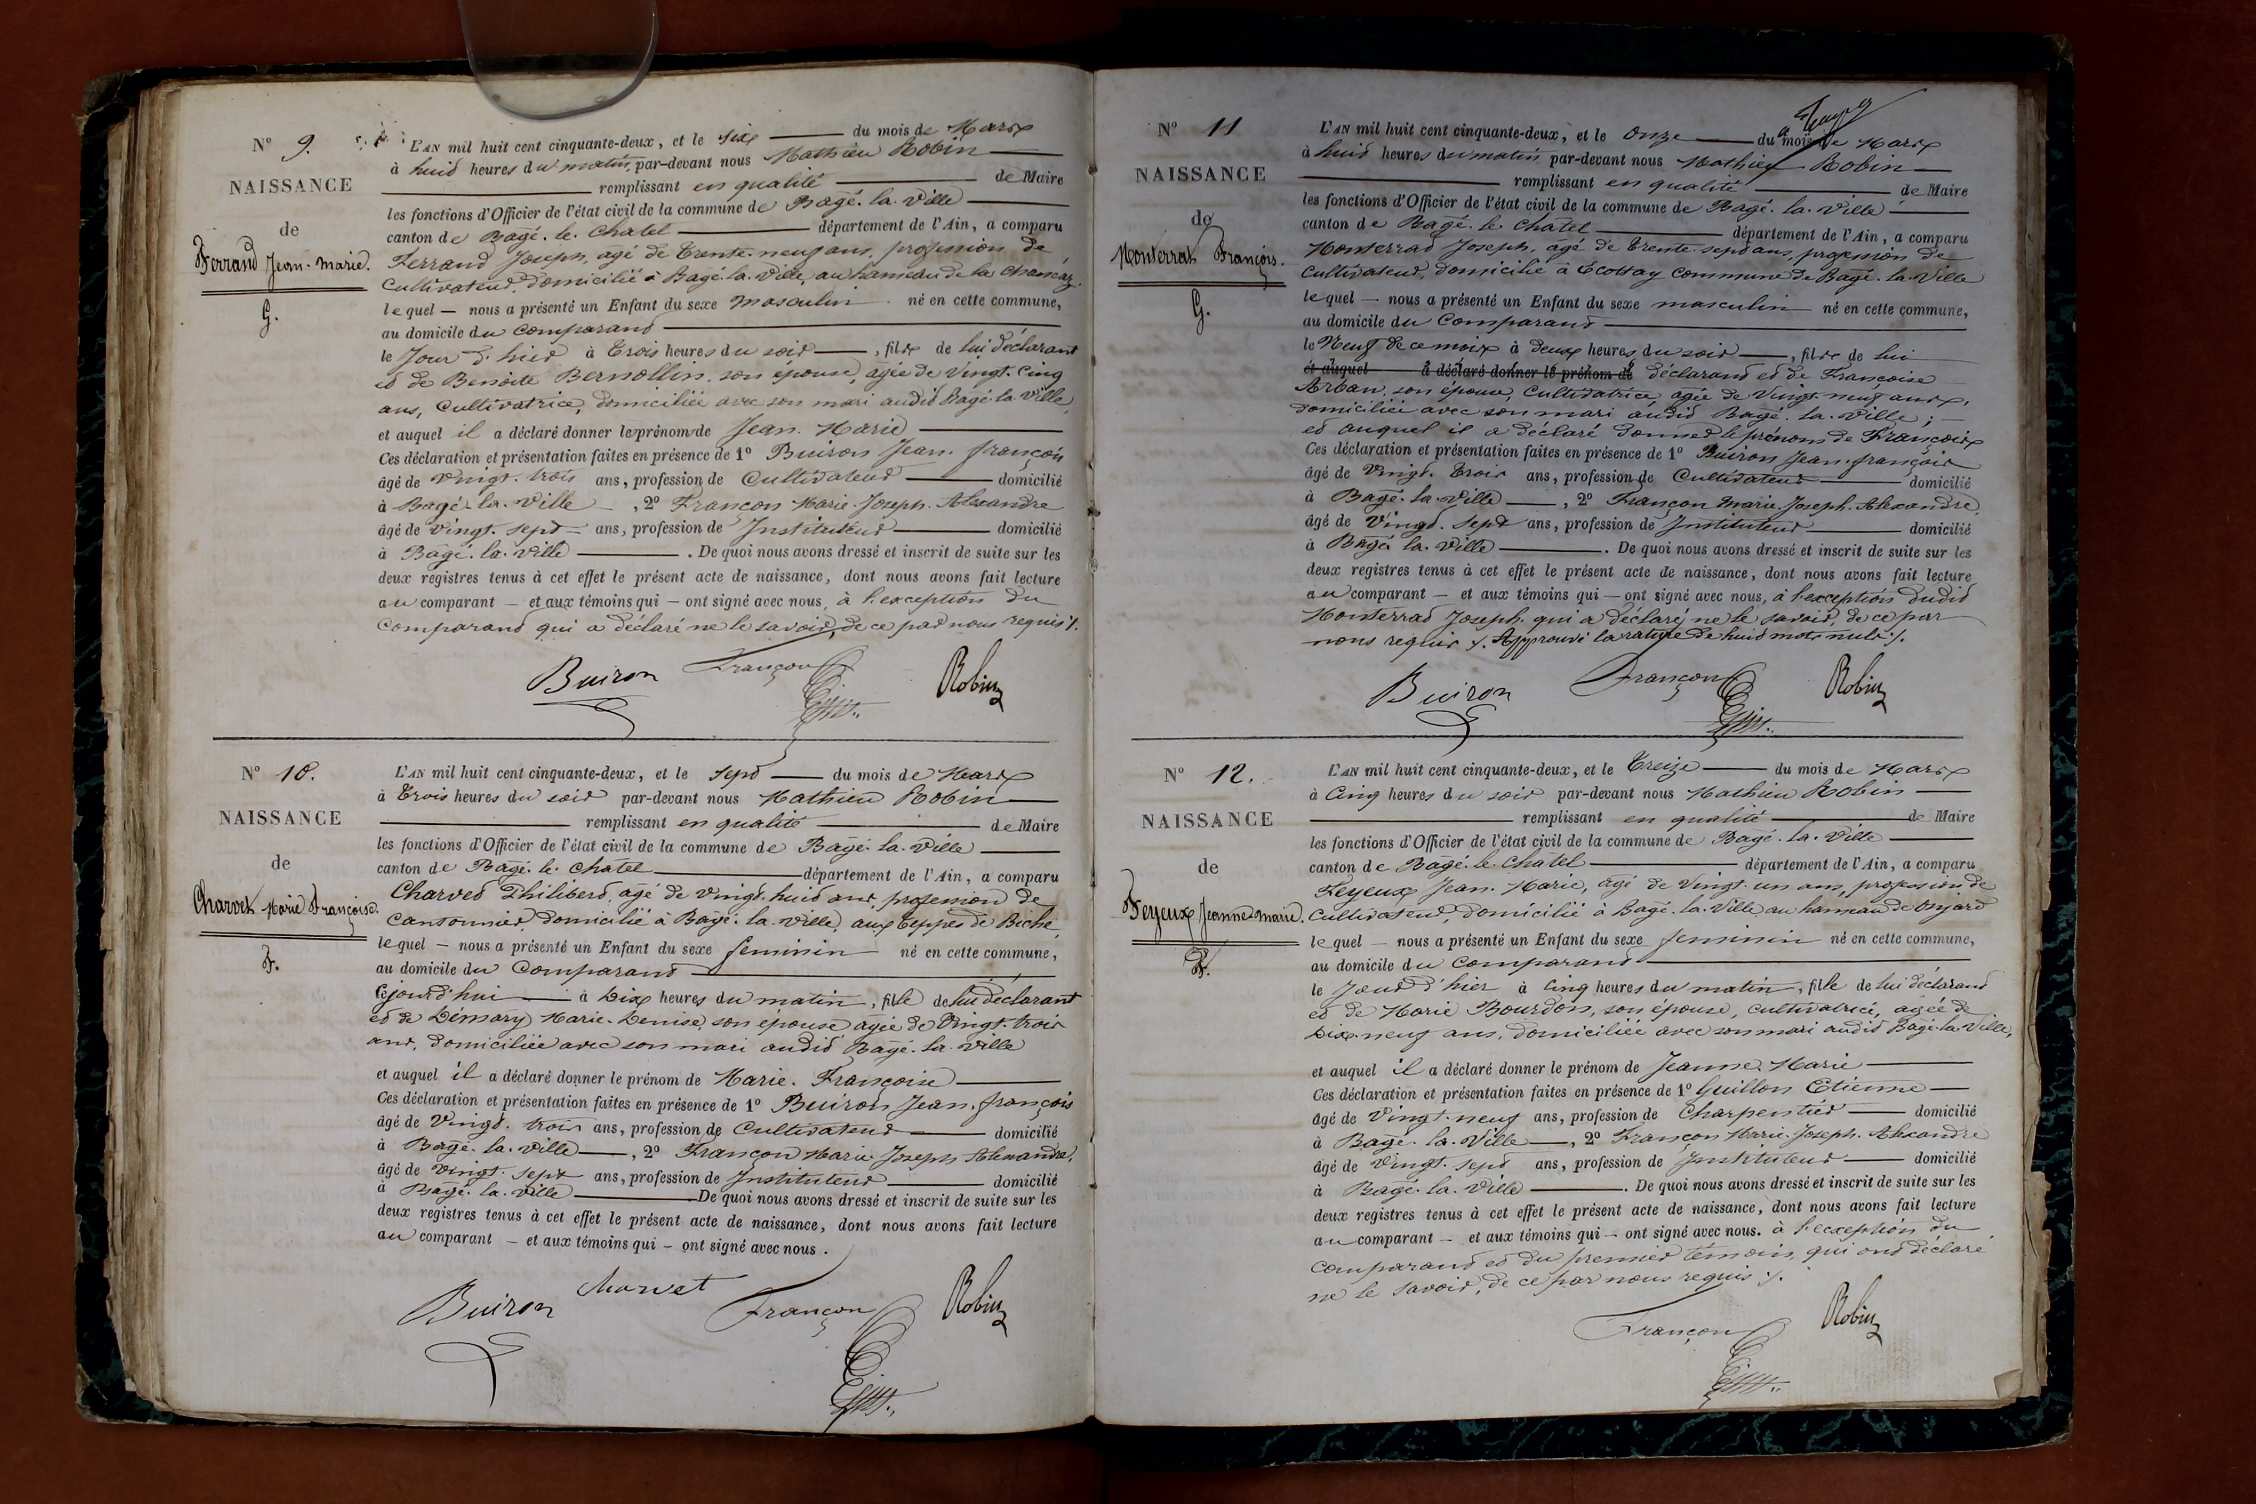 N° 9.
NAISSANCE
de
Ferrand Jean-Marie.
G.
L'AN mil huit cent cinquante-deux, et le six du mois de Mars
à huit heures du matin, par-devant nous Mathieu Robin
remplissant en qualité de Maire
les fonctions d'Officier de l'état civil de la commune de Bagé-la-Ville
canton de Bagé-le-Chatel département de l'Ain, a comparu
Ferrand Joseph, agé de trente-neuf ans, profession de
Cultivateur, domicilié à Bagé-la-Ville, au hameau de la
lequel — nous a présenté un Enfant du sexe masculin né en cette commune,
au domicile du comparant
le jour d'hier à trois heures du soir, fils de lui déclarant
et de Benoite Bernollin, son épouse, agée de vingt-cinq
ans, Cultivatrice, domiciliée avec son mari audit Bagé-la-Ville,
et auquel il a déclaré donner le prénom de Jean-Marie
Ces déclaration et présentation faites en présence de 1° Buiron Jean-françois
âgé de vingt-trois ans, profession de Cultivateur domicilié
à Bagé-la-Ville, 2° Françon Marie-Joseph-Alexandre
âgé de vingt-sept ans, profession de Instituteur domicilié
à Bagé-la-Ville. De quoi nous avons dressé et inscrit de suite sur les
deux registres tenus à cet effet le présent acte de naissance, dont nous avons fait lecture
au comparant — et aux témoins qui — ont signé avec nous, à l'exception du
comparant qui a déclaré ne le savoir, de ce par nous requis ./.
Buiron Françon Robin
N° 10.
NAISSANCE
de
Charvet Marie Françoise.
F.
L'AN mil huit cent cinquante-deux, et le sept du mois de Mars
à trois heures du soir par-devant nous Mathieu Robin
remplissant en qualité de Maire
les fonctions d'Officier de l'état civil de la commune de Bagé-la-Ville
canton de Bagé-le-Chatel département de l'Ain, a comparu
Charvet Philibert, agé de vingt-huit ans, profession de
Cantonnier, domicilié à Bagé-la-Ville, aux teppes de Biche,
lequel — nous a présenté un Enfant du sexe feminin né en cette commune,
au domicile du comparant
Cejourd'hui à dix heures du matin, fille de lui déclarant
et de Démary Marie-Denise, son épouse agée de vingt-trois
ans, domiciliée avec son mari audit Bagé-la-Ville
et auquel il a déclaré donner le prénom de Marie-Françoise
Ces déclaration et présentation faites en présence de 1° Buiron Jean-françois
âgé de vingt-trois ans, profession de Cultivateur domicilié
à Bagé-la-Ville, 2° Françon Marie-Joseph Alexandre,
âgé de vingt-sept ans, profession de Instituteur domicilié
à Bagé-la-Ville De quoi nous avons dressé et inscrit de suite sur les
deux registres tenus à cet effet le présent acte de naissance, dont nous avons fait lecture
au comparant — et aux témoins qui — ont signé avec nous.
Buiron Charvet Françon Robin
N° 11
NAISSANCE
de
Monterrat François.
G.
L'AN mil huit cent cinquante-deux, et le onze du mois de Mars
à huit heures du matin par-devant nous Mathieu Robin
remplissant en qualité de Maire
les fonctions d'Officier de l'état civil de la commune de Bagé-la-Ville
canton de Bagé-le-Chatel département de l'Ain, a comparu
Monterrat Joseph, agé de trente-sept ans, profession de
Cultivateur, domicilié à Ecottay commune de Bagé-la-Ville
lequel — nous a présenté un Enfant du sexe masculin né en cette commune,
au domicile du comparant
le Neuf de ce mois à deux heures du soir, fils de lui
et auquel a déclaré donner le prénom de déclarant et de Françoise
Arban, son épouse, Cultivatrice agée de vingt-neuf ans,
domiciliée avec son mari audit Bagé-la-Ville;
et auquel il a déclaré donner le prénom de François
Ces déclaration et présentation faites en présence de 1° Buiron Jean-françois
âgé de vingt-trois ans, profession de Cultivateur domicilié
à Bagé-la-Ville, 2° Françon Marie-Joseph-Alexandre,
âgé de vingt-sept ans, profession de Instituteur domicilié
à Bagé la Ville. De quoi nous avons dressé et inscrit de suite sur les
deux registres tenus à cet effet le présent acte de naissance, dont nous avons fait lecture
au comparant — et aux témoins qui — ont signé avec nous, à l'exception dudit
Monterrat Joseph qui a déclaré ne le savoir, de ce par
nous requis ./. Approuvé la rature de huit mots nuls ./.
Buiron Françon Robin
N° 12.
NAISSANCE
de
Feyeux Jeanne-Marie.
F.
L'AN mil huit cent cinquante-deux, et le treize du mois de Mars
à cinq heures du soir par-devant nous Mathieu Robin
remplissant en qualité de Maire
les fonctions d'Officier de l'état civil de la commune de Bagé-la-Ville
canton de Bagé-le-Chatel département de l'Ain, a comparu
Feyeux Jean-Marie, agé de vingt-un ans, profession de
Cultivateur, domicilié à Bagé-la-Ville au hameau de
lequel — nous a présenté un Enfant du sexe feminin né en cette commune,
au domicile du comparant
le jour d'hier à cinq heures du matin, fille de lui déclarant
et de Marie Bourdon, son épouse, cultivatrice, agée de
dix-neuf ans, domiciliée avec son mari audit Bagé-la-Ville,
et auquel il a déclaré donner le prénom de Jeanne-Marie
Ces déclaration et présentation faites en présence de 1° Guillon Etienne
âgé de vingt-neuf ans, profession de Charpentier domicilié
à Bagé-la-Ville, 2° Françon Marie-Joseph-Alexandre
âgé de vingt-sept ans, profession de Instituteur domicilié
à Bagé-la-Ville. De quoi nous avons dressé et inscrit de suite sur les
deux registres tenus à cet effet le présent acte de naissance, dont nous avons fait lecture
au comparant — et aux témoins qui — ont signé avec nous. à l'exception du
comparant et du premier témoin, qui ont déclaré
ne le savoir, de ce par nous requis ./.
Françon Robin